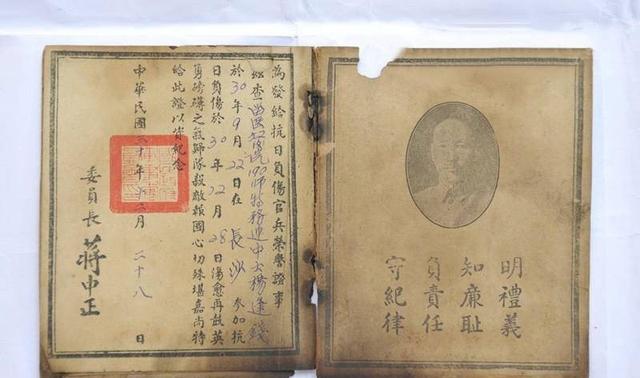 明禮義
知廉恥
負責任
守紀律
為發給抗日負傷官兵榮譽證事
茲查190師特務連中士楊逢錢
於30年9月22日在長沙參加抗
日負傷於30年12月28日傷愈再鼓英
勇磅礴之氣歸隊殺敵報國心切殊堪嘉尚特
給此證以資紀念
中華民國三十年十二月二十八日
委員長蔣中正